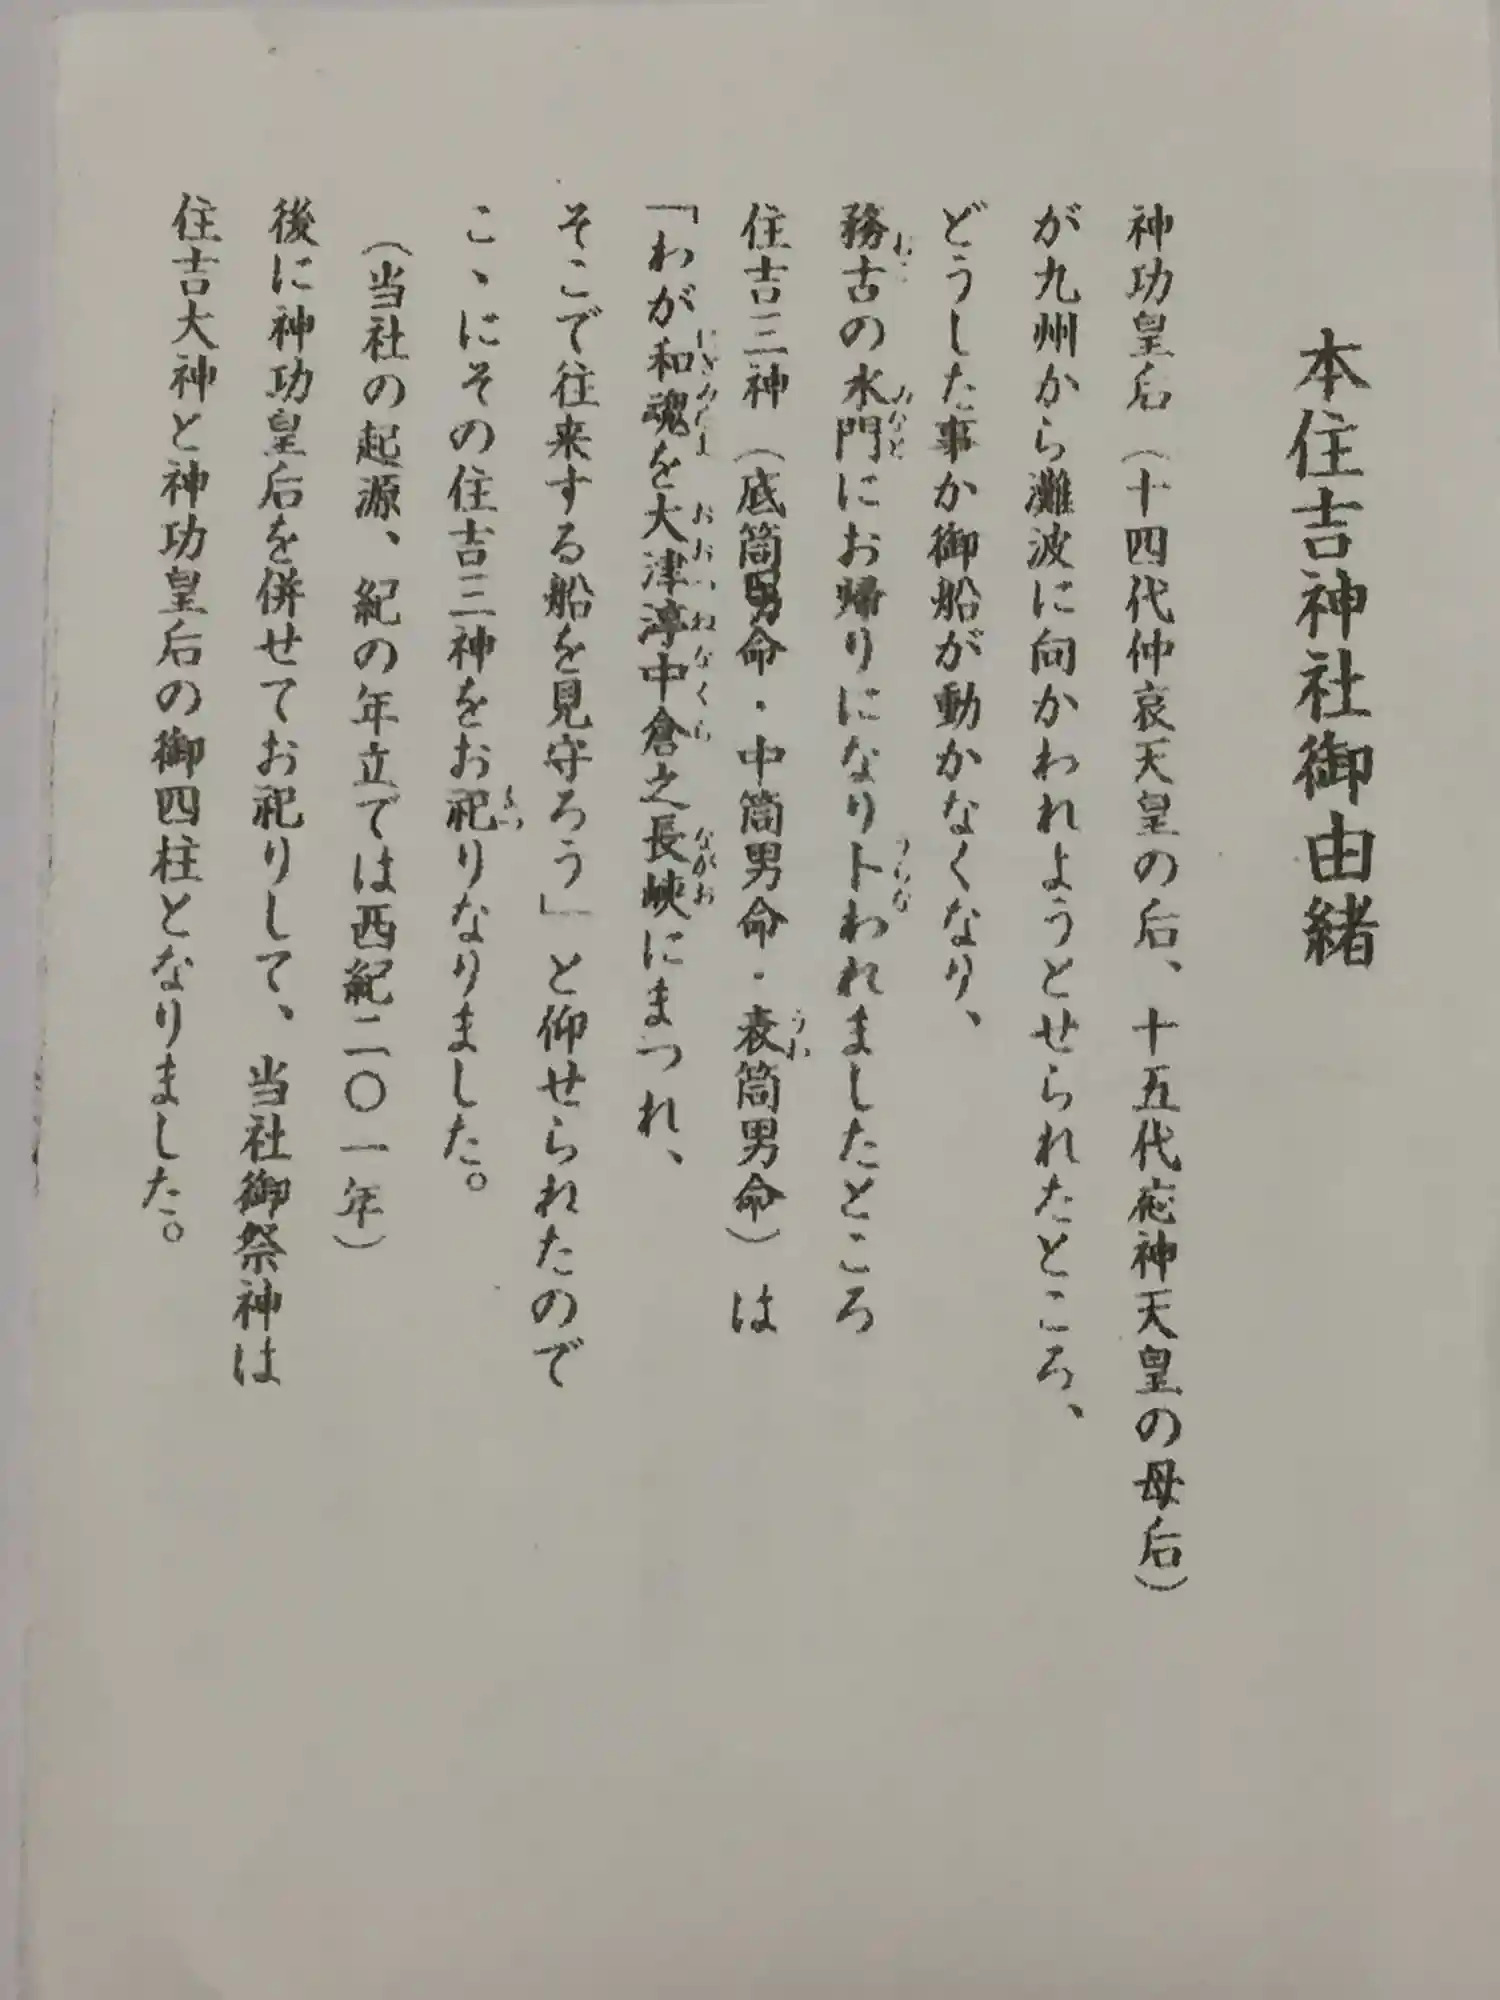 本住吉神社御由緒
神功皇后（十四代仲哀天皇の后、十五代応神天皇の母后）
が九州から灘波に向かわれようとせられたところ、
どうした事か御船が動かなくなり、
務古の水門にお帰りになり卜われましたところ
住吉三神（底筒男命・中筒男命・表筒男命）は
「わが和魂を大津渟中倉之長峡にまつれ、
そこで往来する船を見守ろう」と仰せられたので
こゝにその住吉三神をお祀りなりました。
（当社の起源、紀の年立では西紀二〇一年）
後に神功皇后を併せてお祀りして、当社御祭神は
住吉大神と神功皇后の御四柱となりました。